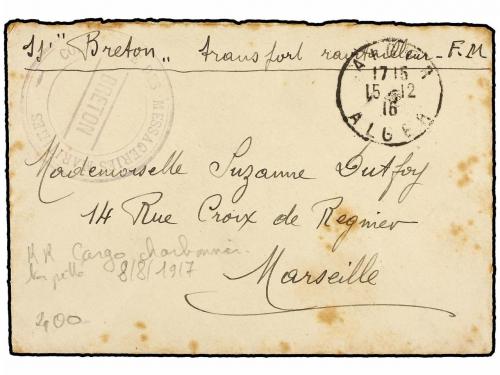 SS "Breton" transfort ravitailleur - F.M
MESSAGERIES MARITIMES
BRETON
17 15
15 - 12
16
ALGER
Mademoiselle Suzanne Dutfoy
14 Rue Croix de Regnier
Marseille
Cargo charbonnier
8/8/1917